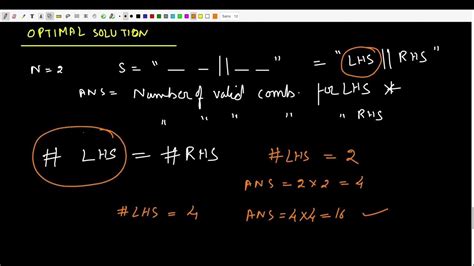 OPTIMAL SOLUTION
N=2 S= " _ _ || _ _ " = "LHS || RHS"
ANS= Number of valid comb. for LHS *
" " " " " RHS
# LHS = #RHS #LHS = 2
ANS = 2x2 = 4
#LHS = 4 ANS = 4x4 = 16 ✓